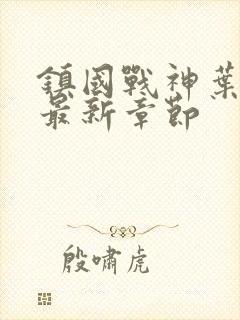 鎮國戰神葉
最新章節
殷嘯虎